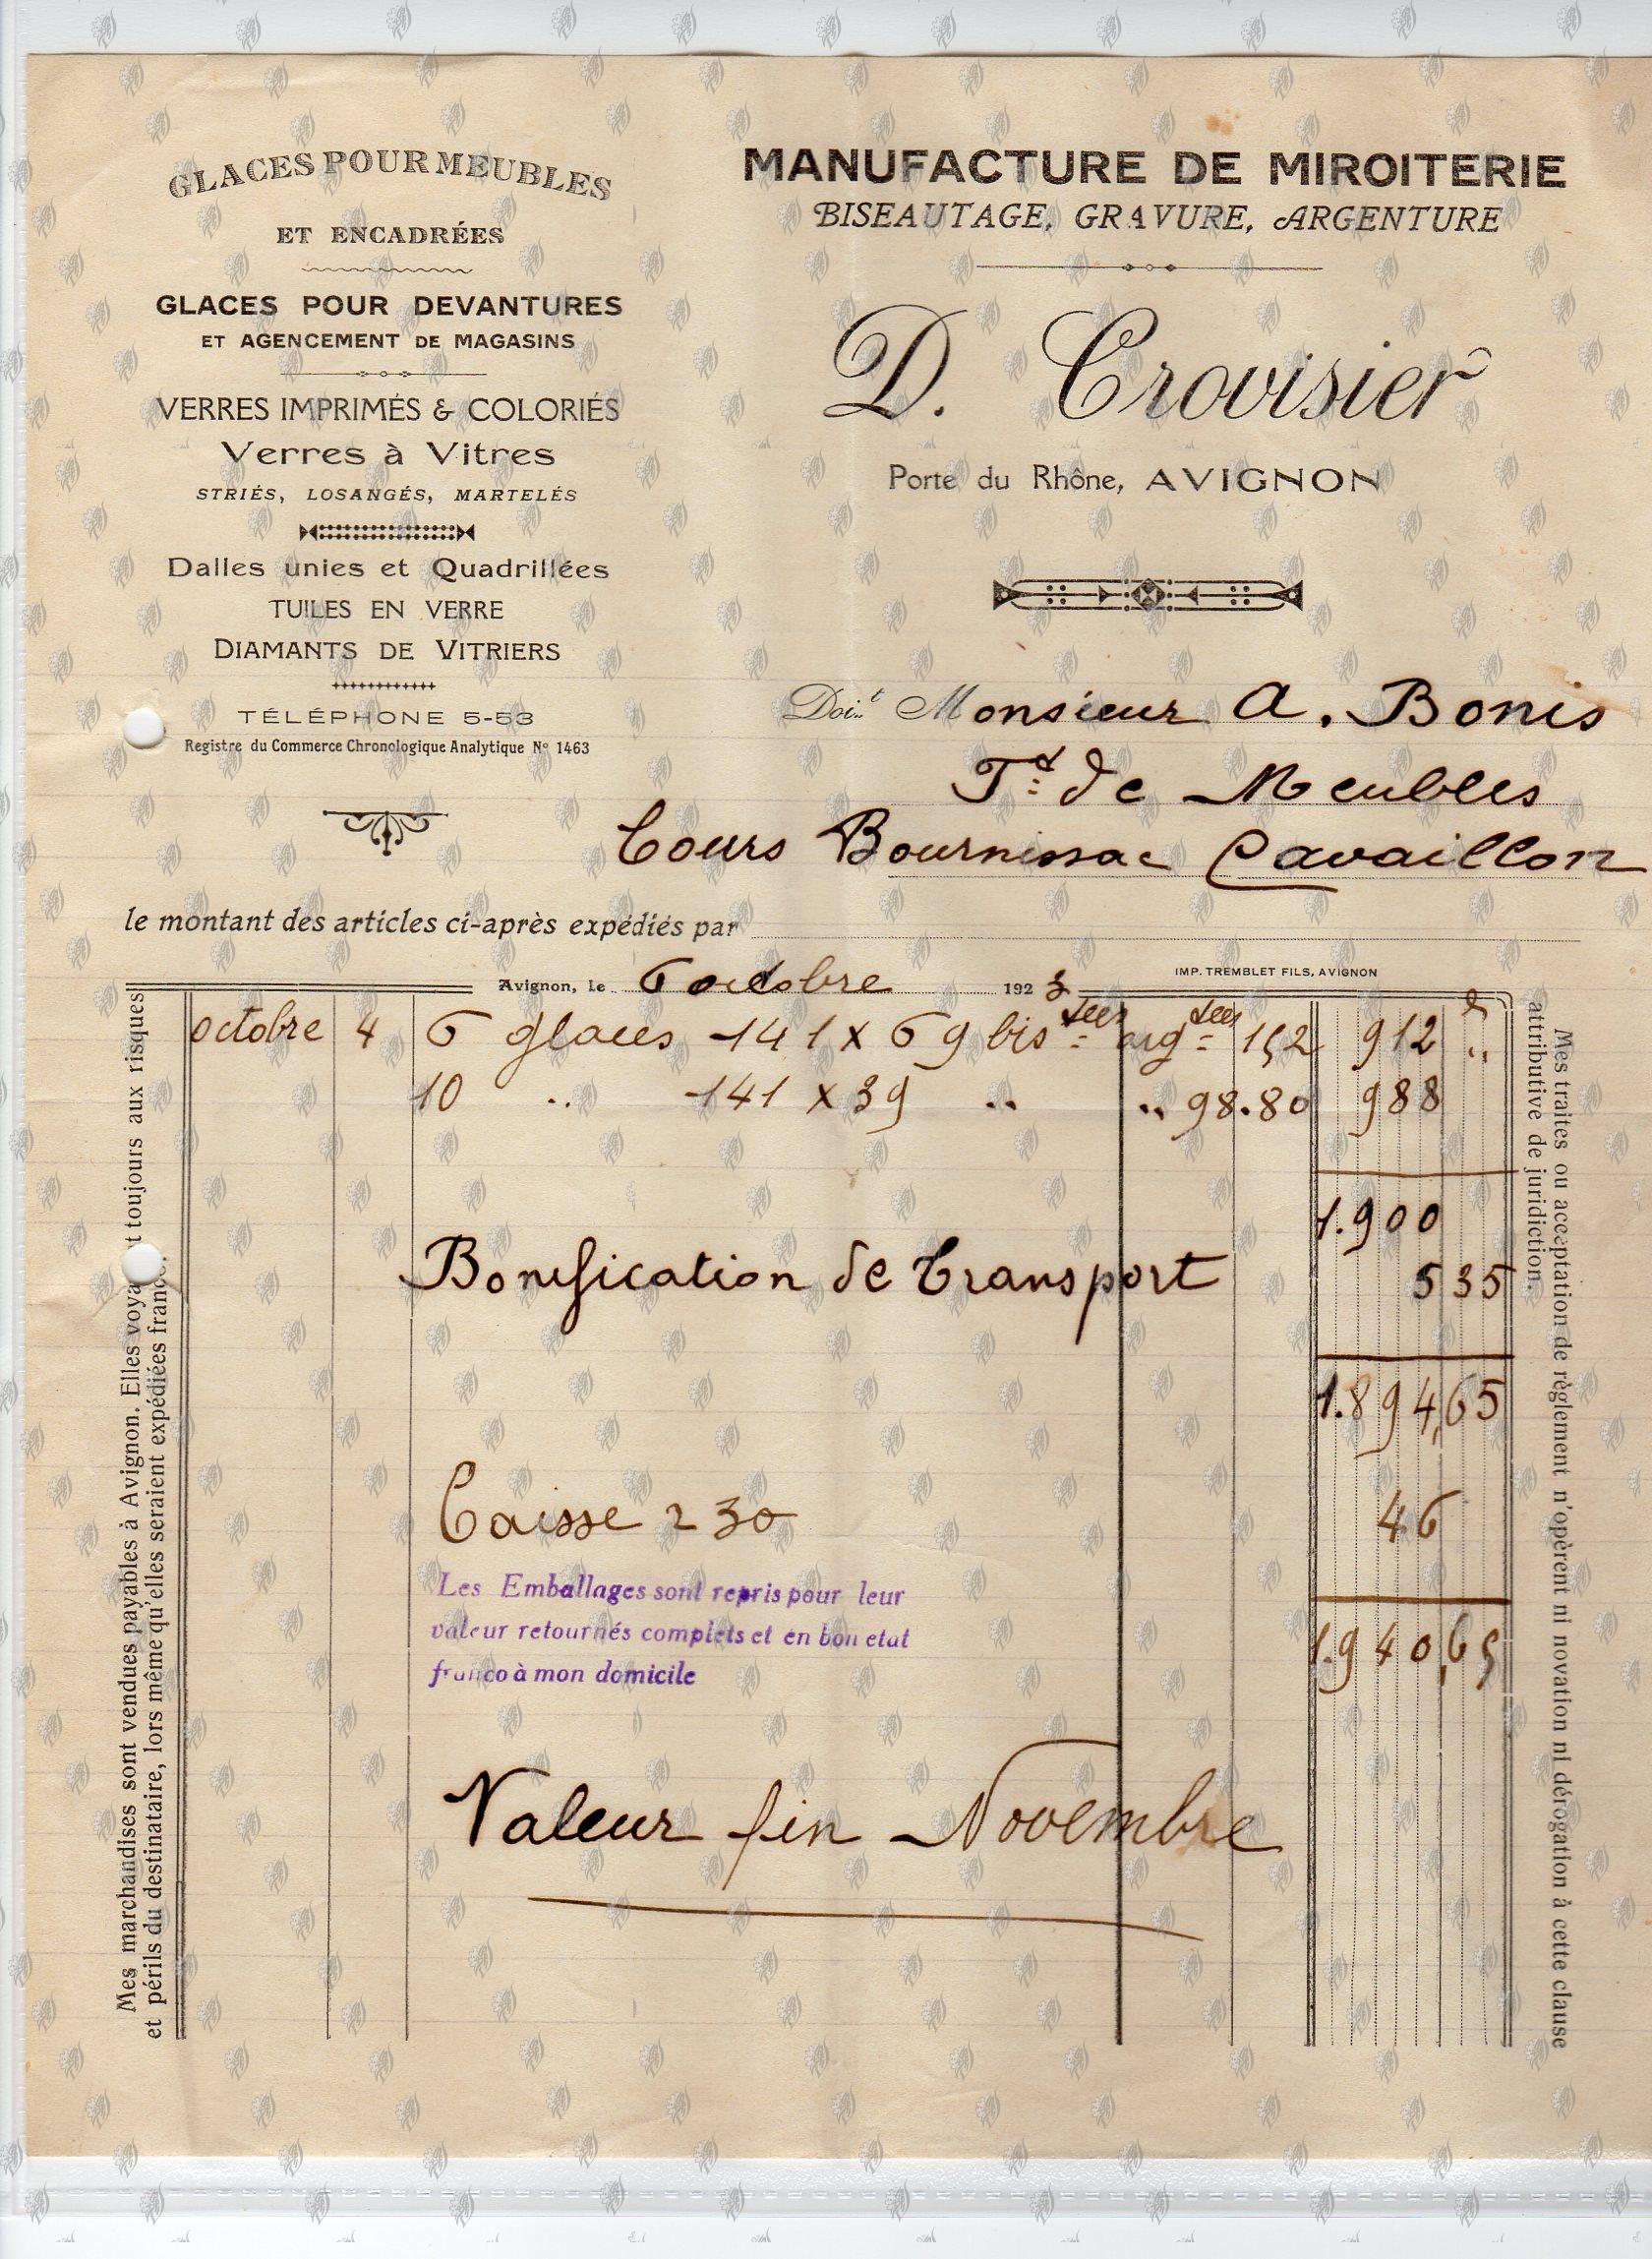 GLACES POUR MEUBLES
ET ENCADRÉES
GLACES POUR DEVANTURES
ET AGENCEMENT DE MAGASINS
VERRES IMPRIMÉS & COLORIÉS
Verres à Vitres
STRIÉS, LOSANGÉS, MARTELÉS
Dalles unies et Quadrillées
TUILES EN VERRE
DIAMANTS DE VITRIERS
TÉLÉPHONE 5-53
Registre du Commerce Chronologique Analytique No 1463
MANUFACTURE DE MIROITERIE
BISEAUTAGE, GRAVURE, ARGENTURE
D. Crovisier
Porte du Rhône, AVIGNON
Doit Monsieur A. Bonis
de Meubles
Cours Bournissac Cavaillon
le montant des articles ci-après expédiés par
Avignon, le 6 octobre 1923
IMP. TREMBLET FILS, AVIGNON
octobre 4 6 glaces 141 x 69 bistées argtées 152 912 "
10 " 141 x 39 " " 98.80 988
1.900
Bonification de Transport 535
1.894,65
Caisse 230 46
Les Emballages sont repris pour leur
valeur retournés complets et en bon etat
franco à mon domicile
1.940,65
Valeur fin Novembre
Mes marchandises sont vendues payables à Avignon. Elles voya t toujours aux risques
et périls du destinataire, lors même qu'elles seraient expédiées franco.
Mes traites ou acceptation de règlement n'opèrent ni novation ni dérogation à cette clause
attributive de juridiction.